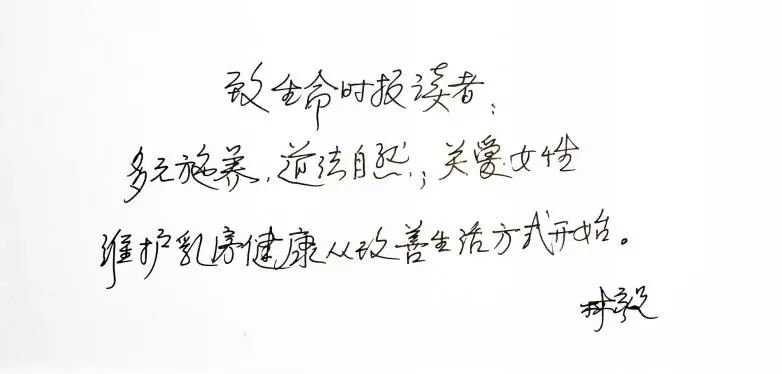 致生命时报读者：
多元施养，道法自然；关爱女性
维护乳房健康从改善生活方式开始。
林毅